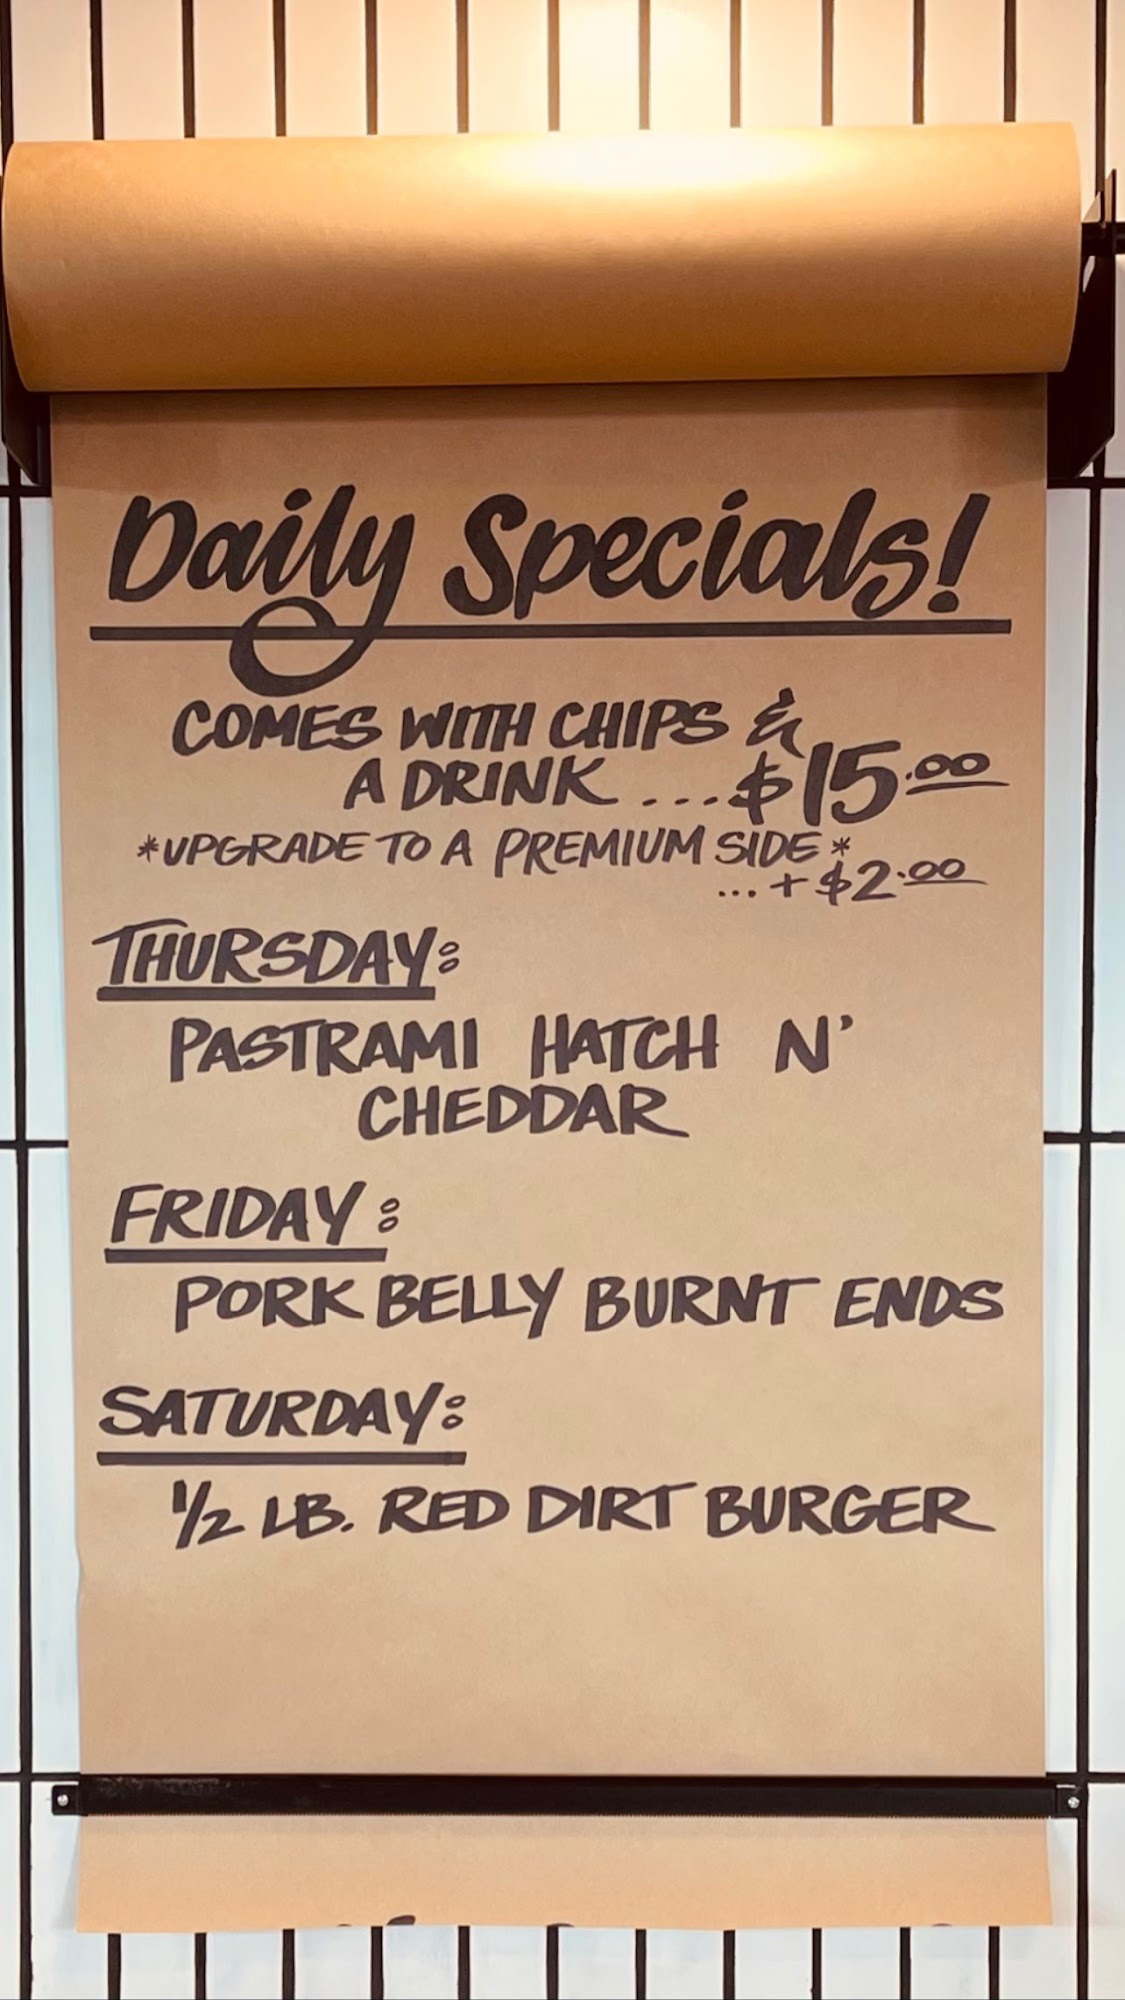 Daily Specials!
COMES WITH CHIPS &
A DRINK ... $15.00
*UPGRADE TO A PREMIUM SIDE*
... + $2.00
THURSDAY:
PASTRAMI HATCH N'
CHEDDAR
FRIDAY:
PORK BELLY BURNT ENDS
SATURDAY:
1/2 LB. RED DIRT BURGER